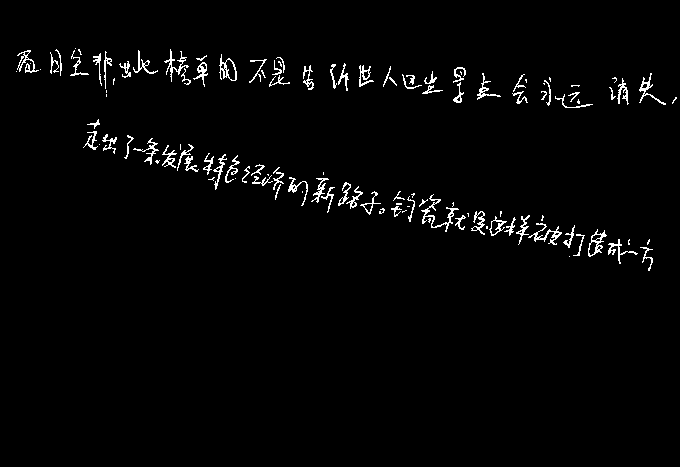 面目全非,出此榜单的不是告诉世人这些景点会永远消失,
走出了一条发展特色经济的新路子。钧瓷就是这样被打造成一方